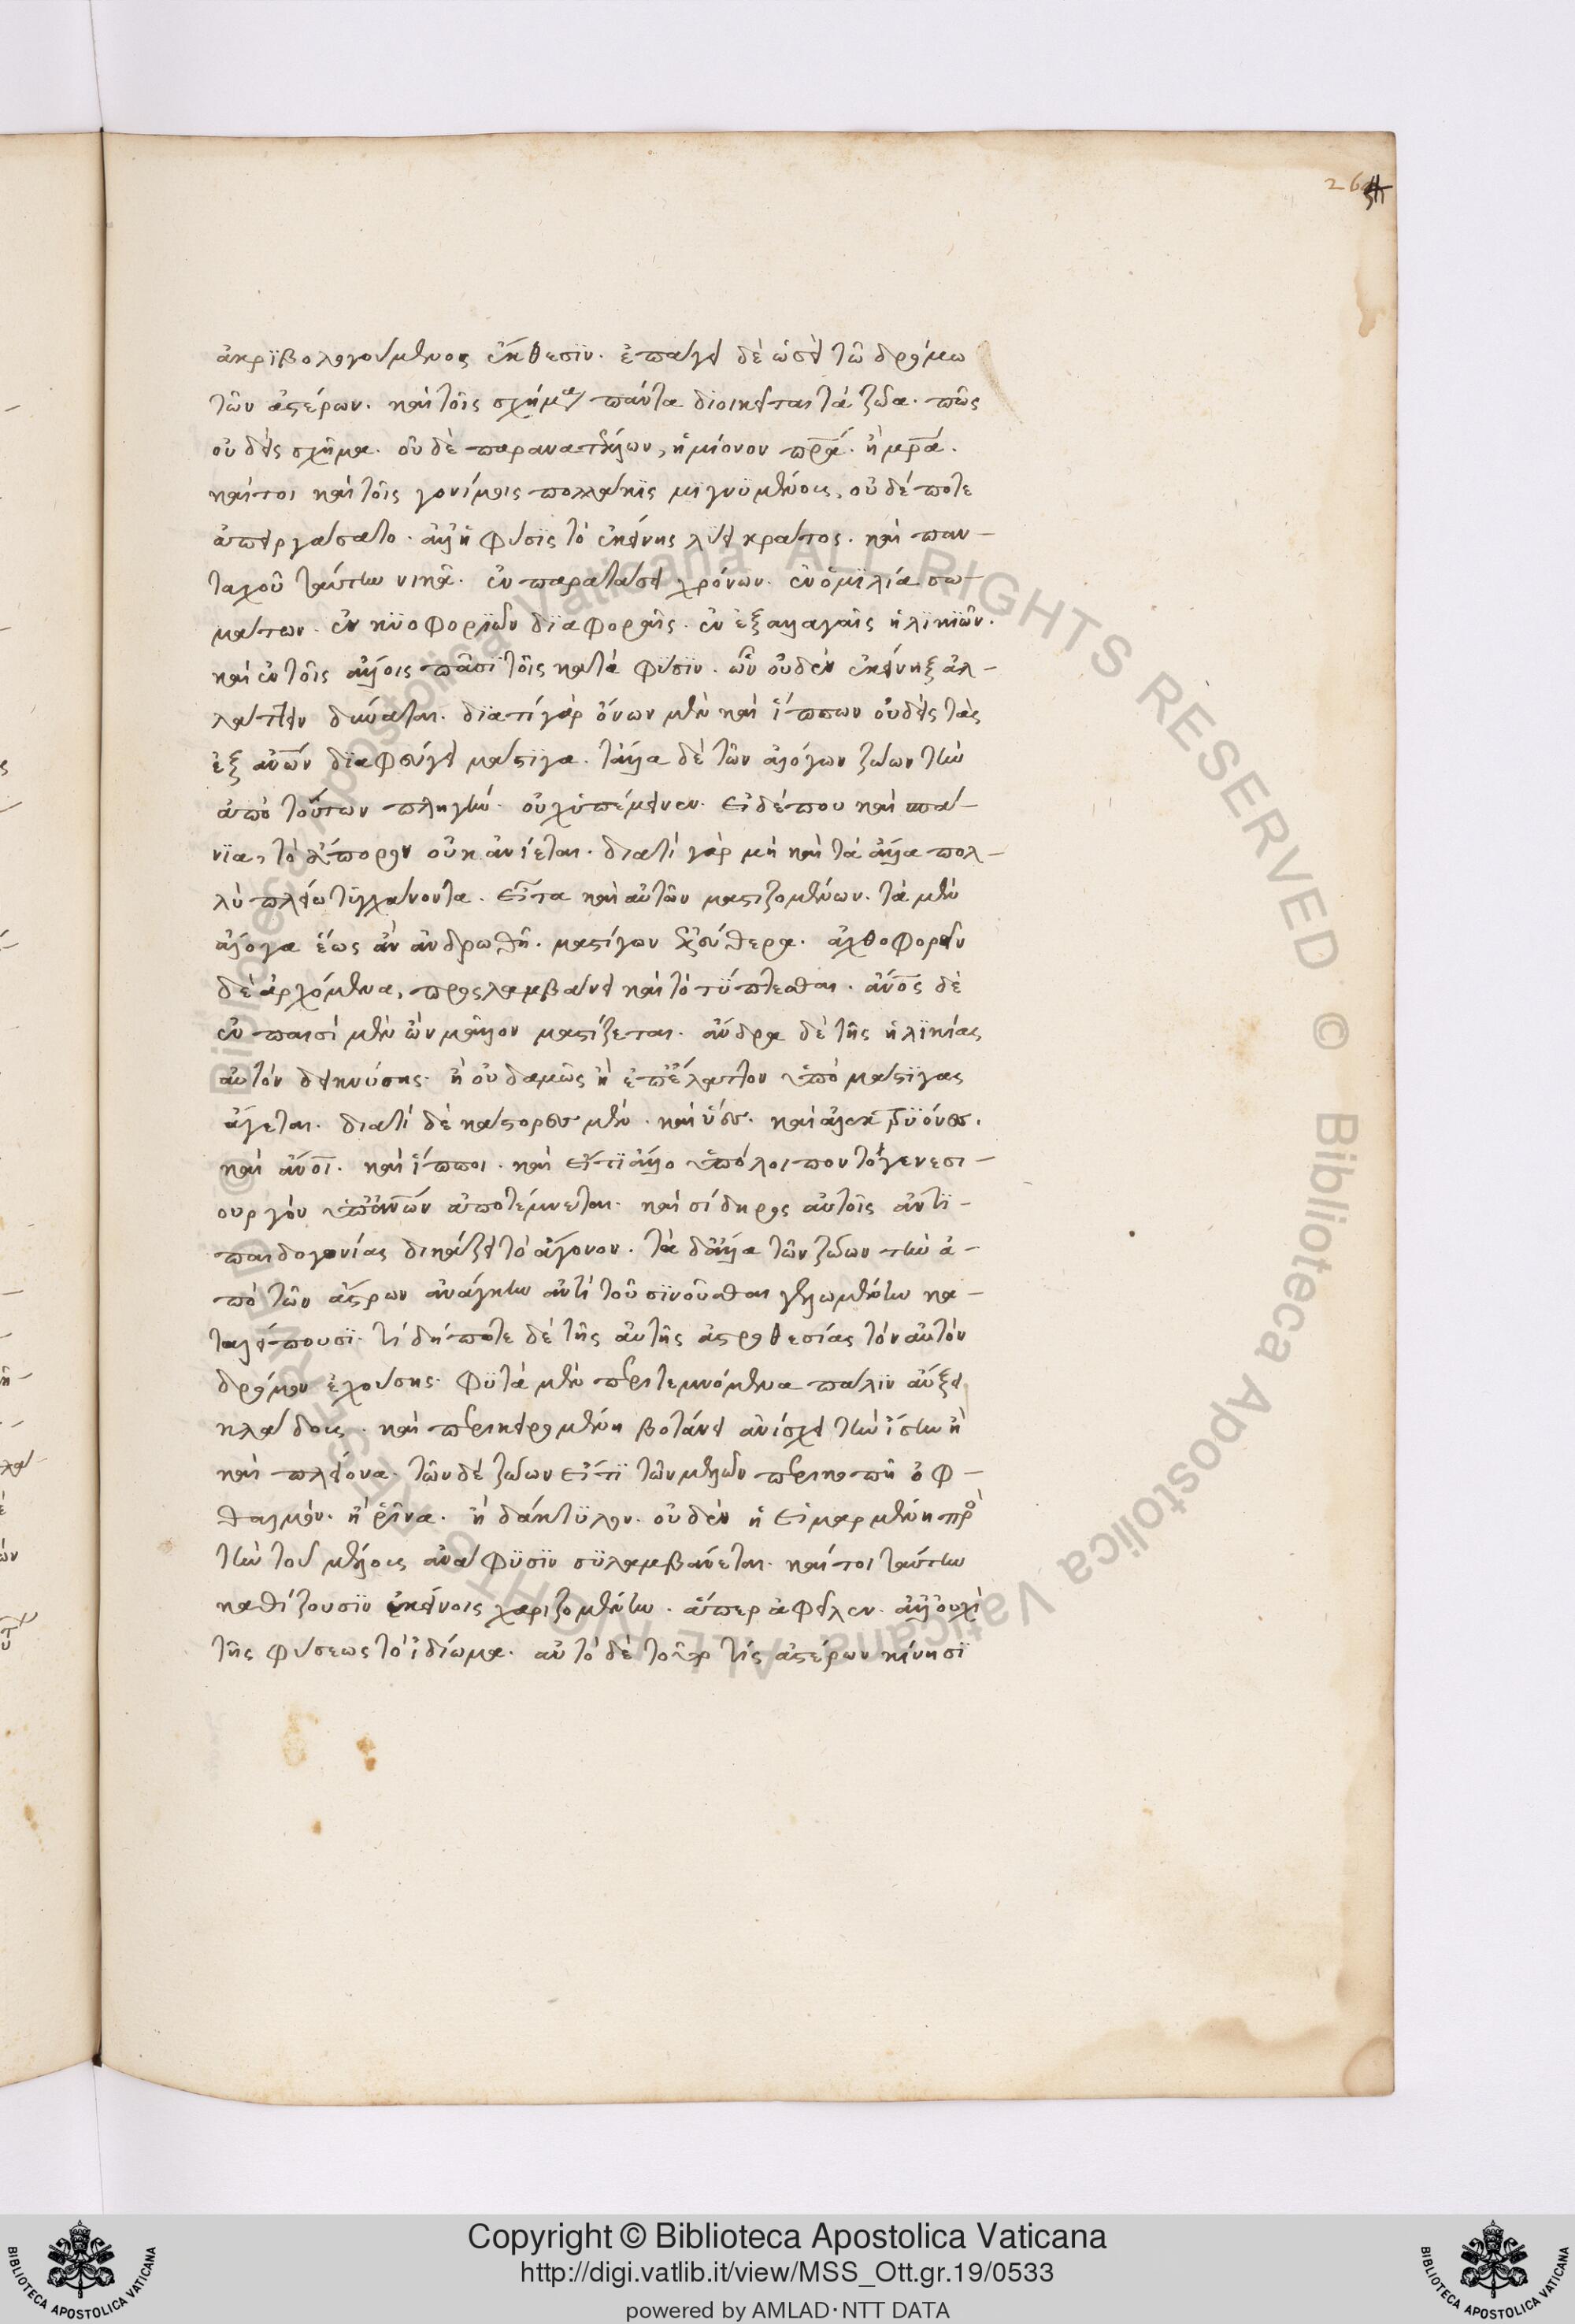 264
ἀκριβολογούμενος ἔκθεσϊν. ἐπάγει δὲ ὡσεὶ τῶ δρόμω
τῶν ἀστέρων. καὶ τοῖς σχήμασι πάντα διοικεῖται τὰ ζῶα. πῶς
οὐδεὶς σχῆμα. οὐδὲ παρανατέλλων, ἡμίονον πρᾶ. ἢ μρᾶ.
καίτοι καὶ τοῖς γονίμοις πολλάκϊς μϊγνϋμένοις, οὐδέποτε
ἀπειργάσατο. ἀλλ' ἡ φύσϊς τὸ ἐκείνης λύει κράτος. καὶ παν-
ταχοῦ ταύτην νικᾶ. ἐν παρατάσει χρόνων. ἐν ὁμϊλία σω-
μάτων. ἐν κϋοφορϊῶν δϊαφοραῖς. ἐν ἐξαλλαγαῖς ἡλϊκϊῶν.
καὶ ἐν τοῖς ἄλλοις πᾶσϊ τοῖς κατὰ φύσϊν. ὧν οὐδὲν ἐκείνη ἐξαλ-
λάττειν δύναται. δϊατί γὰρ ὄνων μὲν καὶ ἵππων οὐδεὶς τὰς
ἐξ αὐτῶν δϊαφεύγει μάστϊγα. τἄλλα δὲ τῶν ἀλόγων ζώων τὴν
ἀπὸ τούτων πληγὴν. οὐχ ὑπέμεινεν. εἰ δέ που καὶ σπά-
νϊα, τὸ ἄπορον οὐκ ἀνίεται. διατί γὰρ μὴ καὶ τὰ ἄλλα πολ-
λὺ πλείω τϋγχάνοντα. εἶτα καὶ αὐτῶν μαστιζομένων. τὰ μὲν
ἄλογα ἕως ἂν ἀνδρωθῆ. μαστίγων ἐλεύθερα. ἀχθοφορεῖν
δὲ ἀρχόμενα, προςλαμβάνει καὶ τὸ τύπτεσθαι. ἄνος δὲ
ἐν παισὶ μὲν ὢν μᾶλλον μαστίζεται. ἄνδρα δὲ τῆς ἡλϊκίας
αὐτὸν δεικνύσης. ἢ οὐδαμῶς ἢ ἐπ' ἔλαττον ὑπὸ μάστϊγας
ἄγεται. διατί δὲ κάστορες μὲν. καὶ ὕες. καὶ ἀλεκτρϋόνες.
καὶ ἄνοι. καὶ ἵπποι. καὶ εἴ τϊ ἄλλο ὑπόλοιπον τὸ γενεσι-
ουργὸν ὑπ' ἀνῶν ἀποτέμνεται. καὶ σίδηρος αὐτοῖς ἀντϊ-
παιδογονίας δικάζει τὸ ἄγονον. τὰ δ' ἄλλα τῶν ζώων τὴν ἀ-
πὸ τῶν ἄστρων ἀνάγκην ἀντὶ τοῦ σϊνοῦσθαι γελωμένην κα-
ταλείπουσϊ. τί δήποτε δὲ τῆς αὐτῆς ἀστροθεσίας τὸν αὐτὸν
δρόμον ἐχούσης. φϋτὰ μὲν περιτεμνόμενα πάλϊν αὔξει
κλάδοις. καὶ περικειρομένη βοτάνη ἀνίσχει τὴν ἴσην ἢ
καὶ πλείονα. τῶν δὲ ζώων εἴ τϊ τῶν μελῶν περικοπῆ ὀφ-
θαλμὸν. ἢ ῥῖνα. ἢ δάκτϋλον. οὐδὲν ἡ εἱμαρμένη πρὸ
τὴν τοῦ μέλους ἀνάφϋσϊν σϋλλαμβάνεται. καίτοι ταύτην
καθίζουσϊν ἐκείνοις χαριζομένην. ἅπερ ἀφεῖλεν. ἀλλ' οὐχὶ
τῆς φύσεως τὸ ἰδίωμα. αὐτὸ δὲ τοῦτο τίς ἀστέρων κίνησϊ
Copyright © Biblioteca Apostolica Vaticana
http://digi.vatlib.it/view/MSS_Ott.gr.19/0533
powered by AMLAD·NTT DATA